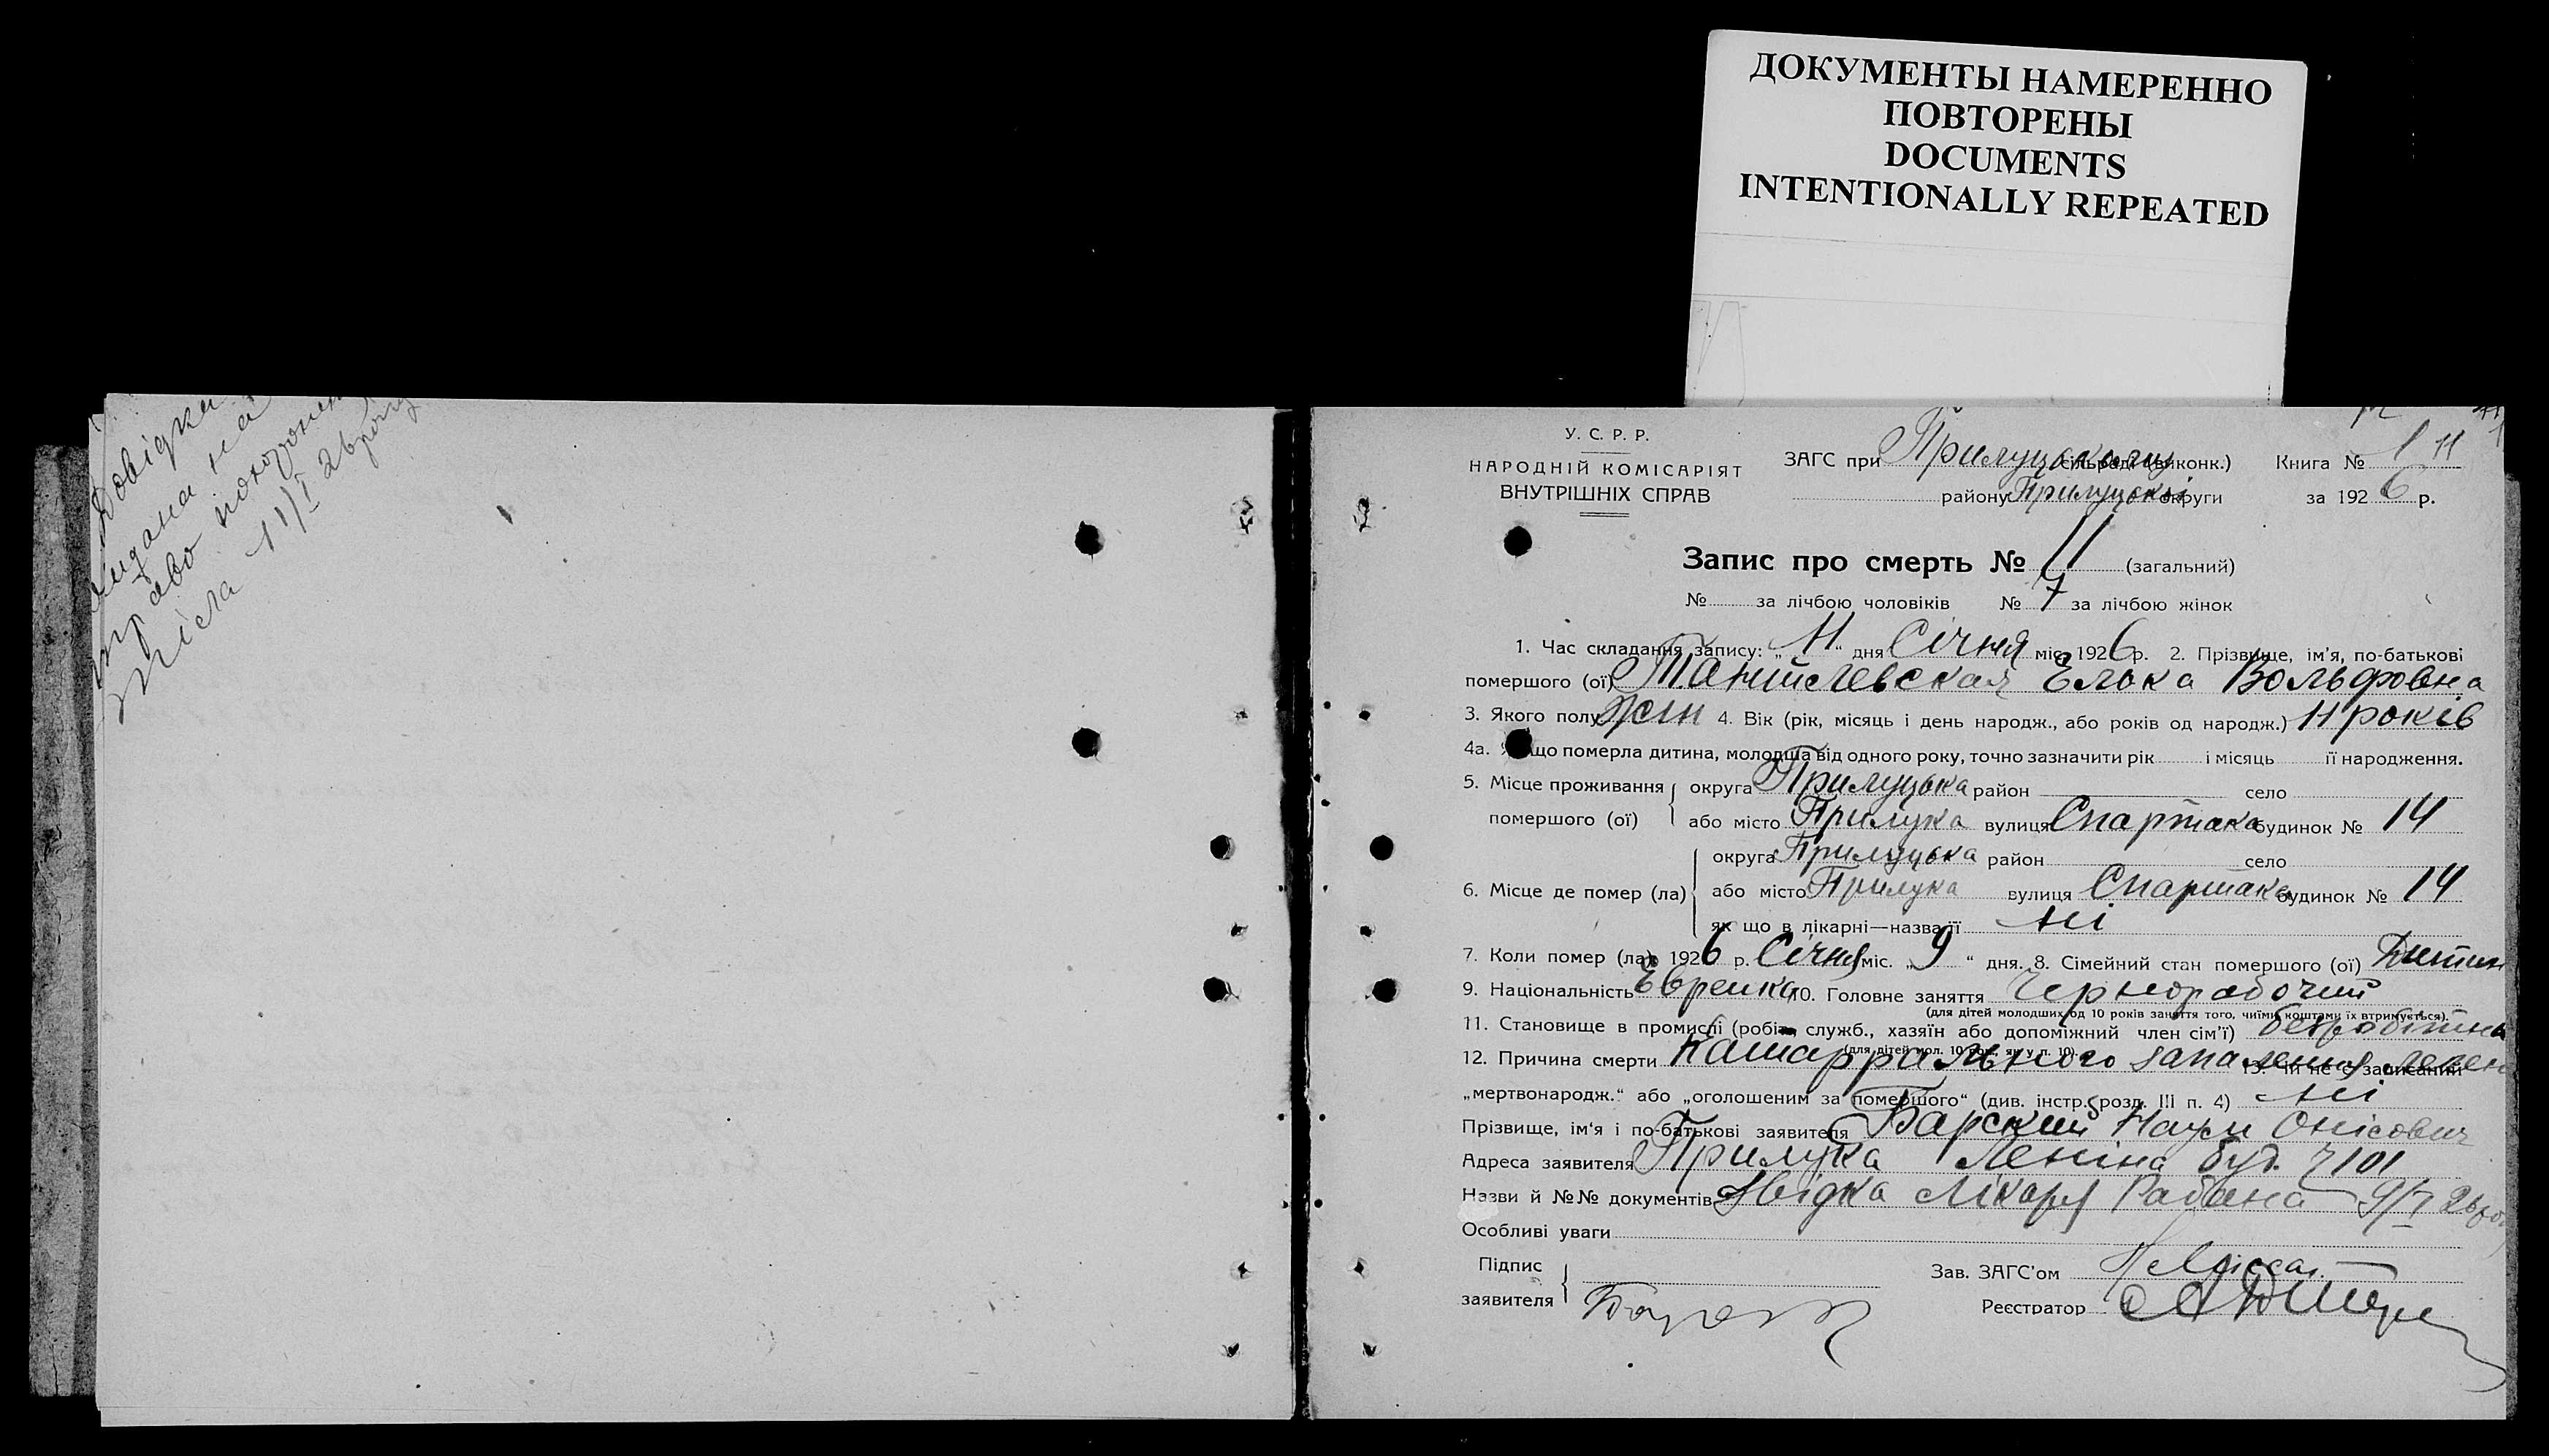 ДОКУМЕНТЫ НАМЕРЕННО
ПОВТОРЕНЫ
DOCUMENTS
INTENTIONALLY REPEATED
Довідка
видана на
право похорон
тіла 11/I 26 року
У. С. Р. Р.
НАРОДНІЙ КОМІСАРІЯТ
ВНУТРІШНІХ СПРАВ
ЗАГС при Прилуцькому сільраді (виконк.) Книга № 1
району Прилуцької округи за 1926 р.
Запис про смерть № 11 (загальний)
№ за лічбою чоловіків № 7 за лічбою жінок
1. Час складання запису: „11“ дня Січня міс. 1926 р. 2. Прізвище, ім’я, по-батькові
помершого (ої) Елька Вольфовна
3. Якого полу жін 4. Вік (рік, місяць і день народж., або років од народж.) 11 років
4а. Якщо померла дитина, молодша від одного року, точно зазначити рік і місяць її народження.
5. Місце проживання помершого (ої) округа Прилуцька район село
або місто Прилука вулиця Спартака будинок № 14
6. Місце де помер (ла) округа Прилуцька район село
або місто Прилука вулиця Спартака будинок № 14
як що в лікарні—назва її ні
7. Коли помер (ла) 1926 р. Січня міс. „9“ дня. 8. Сімейний стан помершого (ої) Дитин
9. Національність Єврейка 10. Головне заняття Чернорабочий
(для дітей молодших од 10 років заняття того, чиїми коштами їх втримується).
11. Становище в промислі (робітн., служб., хазяїн або допоміжний член сім’ї) безробітний
12. Причина смерти Катаррального запалення легень 13. Чи не є записаний
„мертвонародж.“ або „оголошеним за помершого“ (див. інстр. розд. III п. 4) ні
Прізвище, ім‘я і по-батькові заявителя Барский Наум
Адреса заявителя Прилука Леніна буд. 101
Назви й №№ документів Звідка лікаря 9/I 26 року
Особливі уваги
Підпис
заявителя
Зав. ЗАГС’ом
Реєстратор